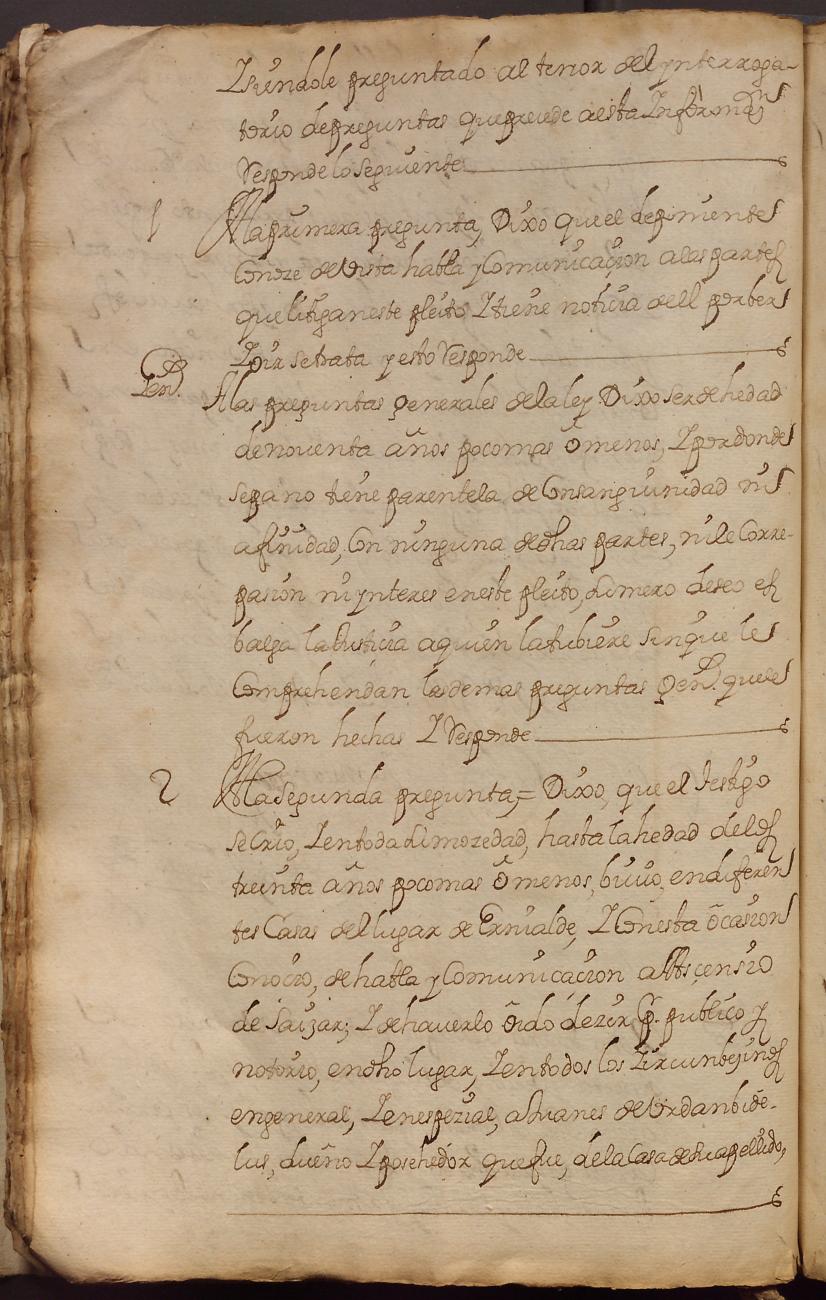 Y siendole preguntado al tenor del ynterroga-
torio de preguntas que preçede a esta Informaon
Responde lo seguiente
1 A la primera pregunta, Dixo que el deponiente
Conoze de Vista habla y Comunicaçion a las partes
que litigan este pleito Y tiene noticia dell por ber
Y oir se trata y esto Responde
Genl. A las preguntas generales de la ley Dixo ser de hedad
de noventa años poco mas o menos, Y por donde
sepa no tiene parentela de Consanguinidad ni
afinidad, Con ninguna de dhas partes, ni le Corre-
pasion ni ynteres en este pleito, si mero deseo es
balga la Justicia a quien la tubiere sin que le
Comprehendan las demas preguntas genl. que le
fueron hechas Y Responde
2 A la Segunda pregunta,= Dixo, que el Testigo
se Crio, Y en toda su mozedad, hasta la hedad de los
treinta años poco mas o menos, biuio, en diferen
tes Casas del lugar de Ernialde, Y Con esta ocasion
Conocio, de habla y Comunicacion a Asçensio
de Saizar; Y de hauerlo oido dezir Po. publico y
notorio, en dho lugar, Y en todos los Zircunbeçinos
en general, Y en espezial, a Juanes de Vrdanbide-
lus, dueño Y posehedor que fue, de la Casa de su apellido,